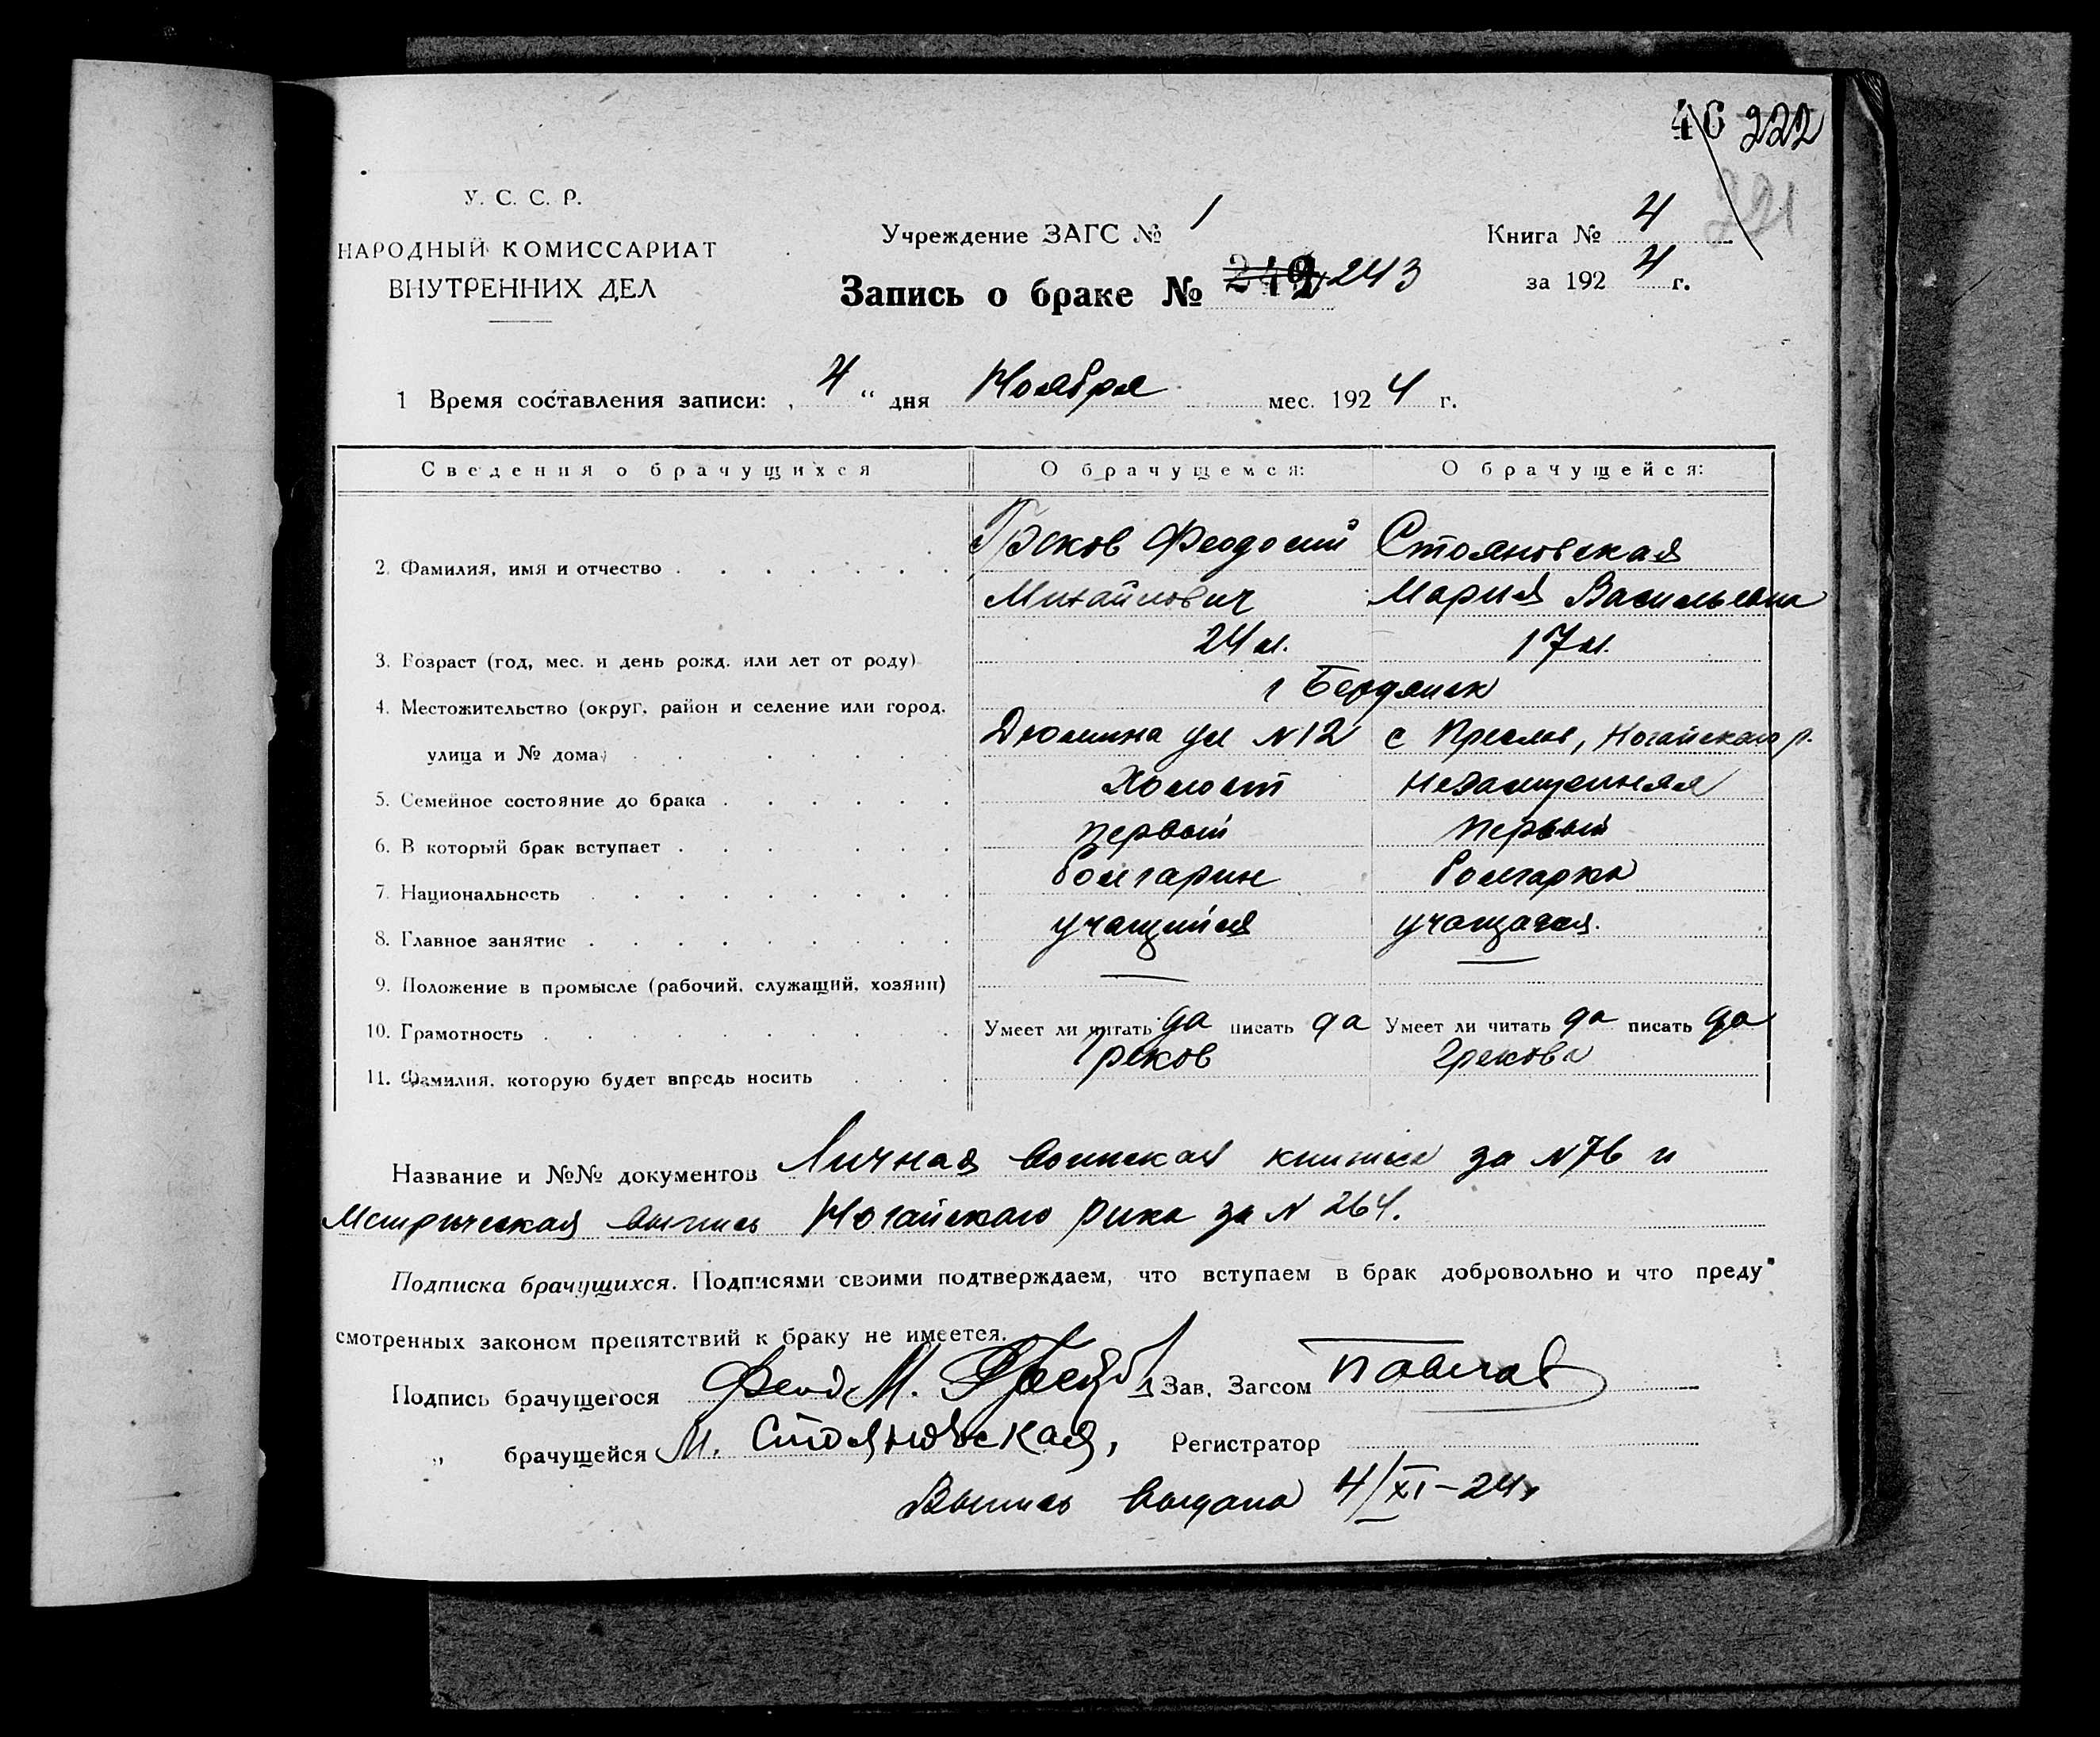 46 222
221
У. С. С. Р.
НАРОДНЫЙ КОМИССАРИАТ
ВНУТРЕННИХ ДЕЛ
Учреждение ЗАГС № 1
Запись о браке № 242 243
Книга № 4
за 1924 г.
1 Время составления записи: „ 4 “ дня Ноября мес. 1924 г.
Сведения о брачущихся О брачущемся: О брачущейся:
2. Фамилия, имя и отчество Греков Феодосий Стояновская
Михайлович Мария Васильевна
3. Возраст (год, мес. и день рожд. или лет от роду) 24 л. 17 л.
г Бердянск
4. Местожительство (округ, район и селение или город,
улица и № дома) Дюмина ул N 12 с Преслав, Ногайского р.
5. Семейное состояние до брака Холост незамужняя
6. В который брак вступает первый первый
7. Национальность болгарин болгарка
8. Главное занятие учащийся учащаяся.
9. Положение в промысле (рабочий, служащий, хозяин) — —
10. Грамотность Умеет ли читать да писать да Умеет ли читать да писать да
11. Фамилия, которую будет впредь носить Греков Грекова
Название и №№ документов Личная воинская книжка за N 76 и
Метрическая выпись Ногайского рика за N 264.
Подписка брачущихся. Подписями своими подтверждаем, что вступаем в брак добровольно и что преду-
смотренных законом препятствий к браку не имеется.
Подпись брачущегося Феод. М. Греков Зав. Загсом Павлов
„ брачущейся М. Стояновская, Регистратор
Выпись выдана 4/XI-24г